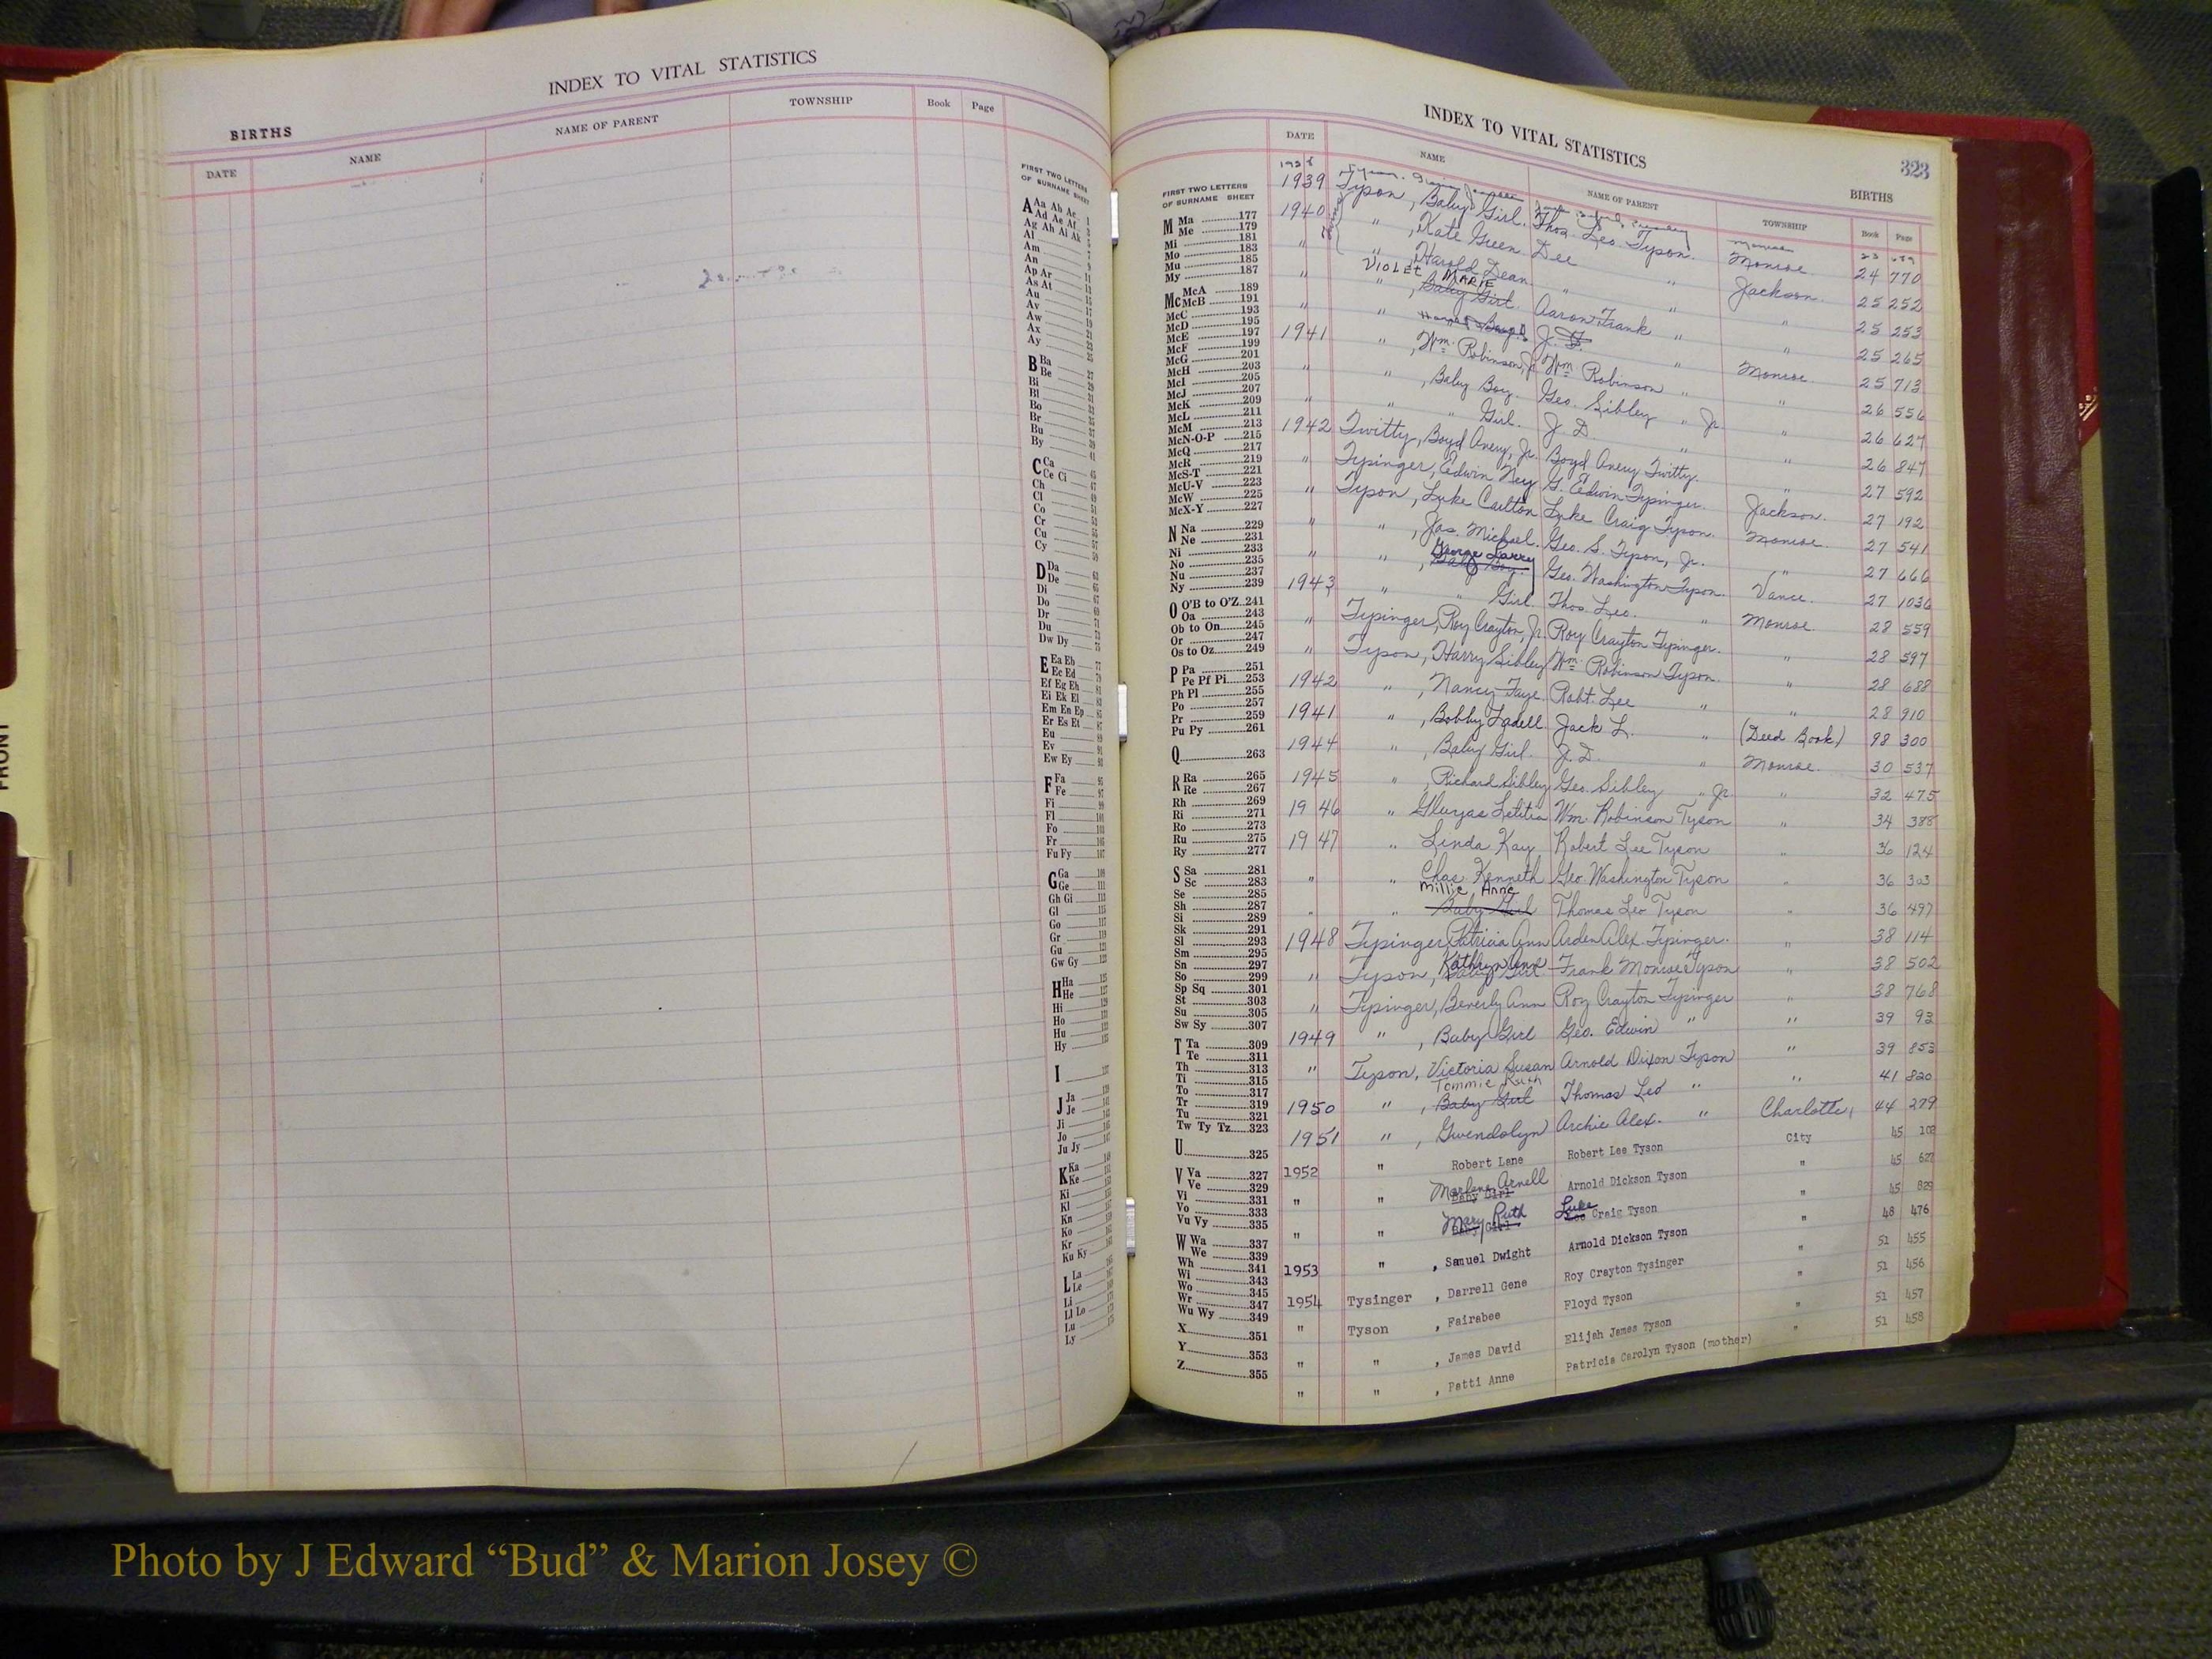 INDEX TO VITAL STATISTICS
BIRTHS
DATE NAME NAME OF PARENT TOWNSHIP Book Page
FIRST TWO LETTERS
OF SURNAME SHEET
A Aa Ab Ac
Ad Ae Af
Ag Ah Ai Ak
Al
Am
An
Ap Ar
As At
Au
Av
Aw
Ax
Ay
B Ba
Be
Bi
Bl
Bo
Br
Bu
By
C Ca
Ce Ci
Ch
Cl
Co
Cr
Cu
Cy
D Da
De
Di
Do
Dr
Du
Dw Dy
E Ea Eb
Ec Ed
Ef Eg Eh
Ei Ek El
Em En Ep
Er Es Et
Eu
Ev
Ew Ey
F Fa
Fe
Fi
Fl
Fo
Fr
Fu Fy
G Ga
Ge
Gh Gi
Gl
Go
Gr
Gu
Gw Gy
H Ha
He
Hi
Ho
Hu
Hy
I
J Ja
Je
Ji
Jo
Ju Jy
K Ka
Ke
Ki
Kl
Kn
Ko
Kr
Ku Ky
L La
Le
Li
Ll Lo
Lu
Ly
FRONT
INDEX TO VITAL STATISTICS
323
BIRTHS
DATE NAME NAME OF PARENT TOWNSHIP Book Page
FIRST TWO LETTERS
OF SURNAME SHEET
M Ma 177
Me 179
Mi 181
Mo 183
Mu 185
My 187
Mc McA 189
McB 191
McC 193
McD 195
McE 197
McF 199
McG 201
McH 203
McI 205
McJ 207
McK 209
McL 211
McM 213
McN-O-P 215
McQ 217
McR 219
McS-T 221
McU-V 223
McW 225
McX-Y 227
N Na 229
Ne 231
Ni 233
No 235
Nu 237
Ny 239
O O'B to O'Z 241
Oa 243
Ob to On 245
Or 247
Os to Oz 249
P Pa 251
Pe Pf Pi 253
Ph Pl 255
Po 257
Pr 259
Pu Py 261
Q 263
R Ra 265
Re 267
Rh 269
Ri 271
Ro 273
Ru 275
Ry 277
S Sa 281
Sc 283
Se 285
Sh 287
Si 289
Sk 291
Sl 293
Sm 295
Sn 297
So 299
Sp Sq 301
St 303
Su 305
Sw Sy 307
T Ta 309
Te 311
Th 313
Ti 315
To 317
Tr 319
Tu 321
Tw Ty Tz 323
U 325
V Va 327
Ve 329
Vi 331
Vo 333
Vu Vy 335
W Wa 337
We 339
Wh 341
Wi 343
Wo 345
Wr 347
Wu Wy 349
X 351
Y 353
Z 355
Monroe 23
1939 Tyson, Baby Girl. Thos. Leo Tyson. Monroe 24 770
1940 " , Kate Green Dee " Jackson 25 252
" " , Harold Dean " " " 25 253
VIOLET MARIE
" " , Baby Girl. Aaron Frank " " 25 265
1941 " Boyd J. " Monroe 25 713
" " , Wm. Robinson, Jr. Wm. Robinson " " 26 556
" " , Baby Boy. Geo. Sibley " Jr. " 26 627
" " " Girl. J. D. " " 26 847
1942 Twitty, Boyd Avery, Jr. Boyd Avery Twitty. " 27 592
" Tysinger, Edwin Ney G. Edwin Tysinger. Jackson. 27 192
" Tyson, Luke Carlton Luke Craig Tyson. Monroe. 27 541
" " , Jas. Michael. Geo. S. Tyson, Jr. " 27 666
George Larry
" " , Baby Boy. Geo. Washington Tyson. Vance. 27 1036
1943 " " Girl. Thos. Leo. " Monroe. 28 559
" Tysinger, Roy Crayton, Jr. Roy Crayton Tysinger. " 28 597
" Tyson, Harry Sibley Wm. Robinson Tyson. " 28 688
1942 " , Nancy Faye. Robt. Lee " " 28 910
1941 " , Bobby Ladell Jack L. " (Deed Book) 98 300
1944 " , Baby Girl. J. D. " Monroe. 30 537
1945 " , Richard Sibley Geo. Sibley " Jr. " 32 475
1946 " Letitia Wm. Robinson Tyson " 34 388
1947 " Linda Kay Robert Lee Tyson " 36 124
" " Chas. Kenneth Geo. Washington Tyson " 36 303
Millie Anne
" " Baby Girl Thomas Leo Tyson " 36 497
1948 Tysinger, Patricia Ann Arden Alex. Tysinger. " 38 114
Kathryn Anne
" Tyson, Baby Girl. Frank Monroe Tyson " 38 502
" Tysinger, Beverly Ann Roy Crayton Tysinger " 38 768
1949 " , Baby Girl Geo. Edwin " " 39 93
" Tyson, Victoria Susan Arnold Dixon Tyson " 39 853
Tommie Ruth
1950 " , Baby Girl Thomas Leo " " 41 820
1951 " , Gwendolyn Archie Alex. " Charlotte, 44 279
1952 " Robert Lane Robert Lee Tyson City 45 102
Marlene Arnell
" " Baby Girl Arnold Dickson Tyson " 45 627
Mary Ruth Luke
" " Baby Girl Craig Tyson " 45 829
1953 " , Samuel Dwight Arnold Dickson Tyson " 48 476
1954 Tysinger , Darrell Gene Roy Crayton Tysinger " 51 455
" Tyson , Fairabee Floyd Tyson " 51 456
" " , James David Elijah James Tyson " 51 457
" " , Patti Anne Patricia Carolyn Tyson (mother) " 51 458
Photo by J Edward “Bud” & Marion Josey ©